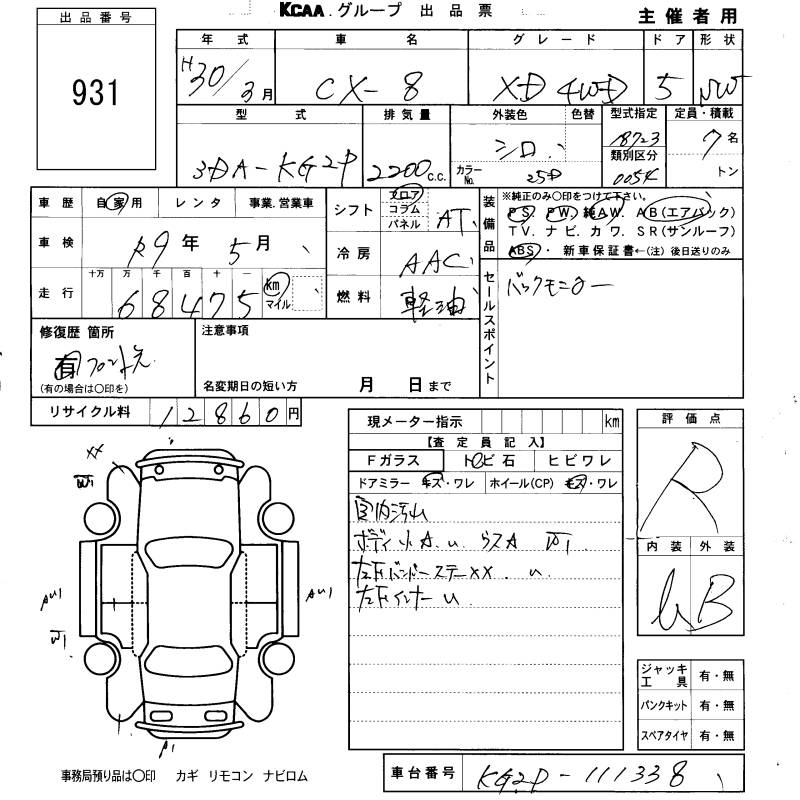 KCAA グループ 出品票
主催者用
出品番号
931
年式 車名 グレード ドア 形状
H30/3月 CX-8 XD 4WD 5 NW
型式 排気量 外装色 色替 型式指定 定員・積載
3DA-KG2P 2200 c.c. シロ カラーNo. 25D 18723 7名
類別区分 0054 トン
車歴 自家用 レンタ 事業.営業車
車検 R9年 5月
走行 十万 万 千 百 十 一
68475 km マイル
シフト フロア コラム パネル AT
冷房 AAC
燃料 軽油
装備品
※純正のみ○印をつけて下さい。
PS. PW. 純AW. AB(エアバック)
TV. ナビ. カワ. SR(サンルーフ)
ABS・ 新車保証書←(注) 後日送りのみ
セールスポイント
バックモニター
修復歴 箇所
有
(有の場合は○印を)
注意事項
名変期日の短い方 月 日まで
リサイクル料 12860円
現メーター指示 km
【査定員記入】
Fガラス トビ石 ヒビワレ
ドアミラー キズ・ワレ ホイール(CP) キズ・ワレ
室内汚れ
ボディ小A.u
左Fバンパーステー××. u
左Fインナーu
評価点
R
内装 外装
B
XX
AU1
AU1
A1
ジャッキ工具 有・無
パンクキット 有・無
スペアタイヤ 有・無
事務局預り品は○印 カギ リモコン ナビロム
車台番号 KG2P-111338